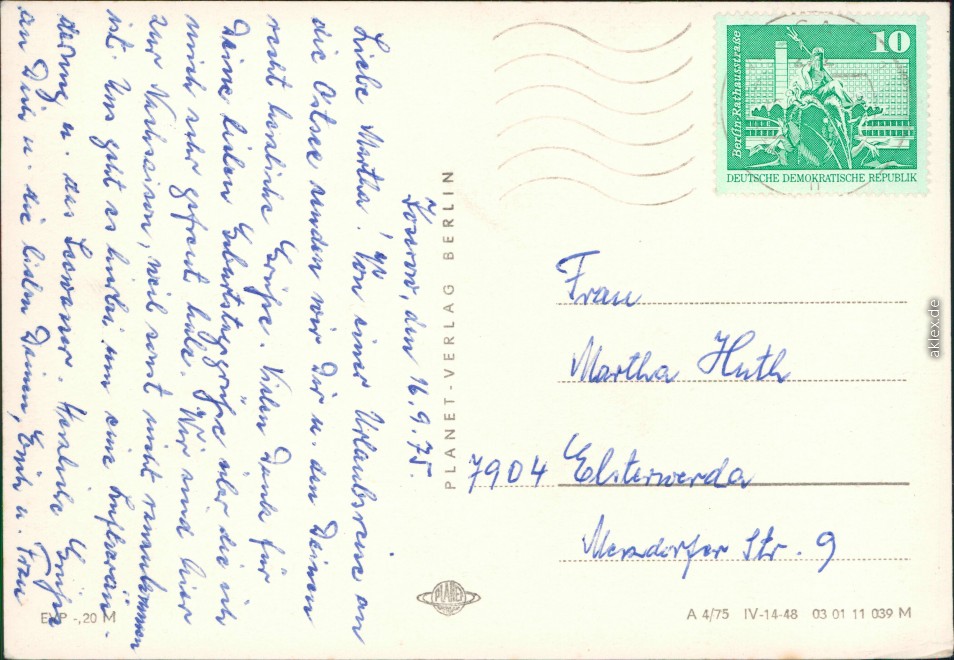 Zowrow, den 16.9.75.
Liebe Martha! Von einer Urlaubsreise an
die Ostsee senden wir Dir u. den Deinen
recht herzliche Grüße. Vielen Dank für
Deine lieben Geburtstagsgrüße über die ich
mich sehr gefreut habe. Wir sind hier
zur Nachsaison, weil sonst nicht ranzukommen
ist. Uns geht es hierbei um eine Luftverän-
derung u. das Seewasser. Herzliche Grüße
an Dich u. die lieben Deinen, Erich u. Frau
PLANET-VERLAG BERLIN
10
Berlin · Rathausstraße
DEUTSCHE DEMOKRATISCHE REPUBLIK
Frau
Martha Huth
7904 Elsterwerda
Merzdorfer Str. 9
PLANET
EVP -,20 M
A 4/75 IV-14-48 03 01 11 039 M
aklex.de